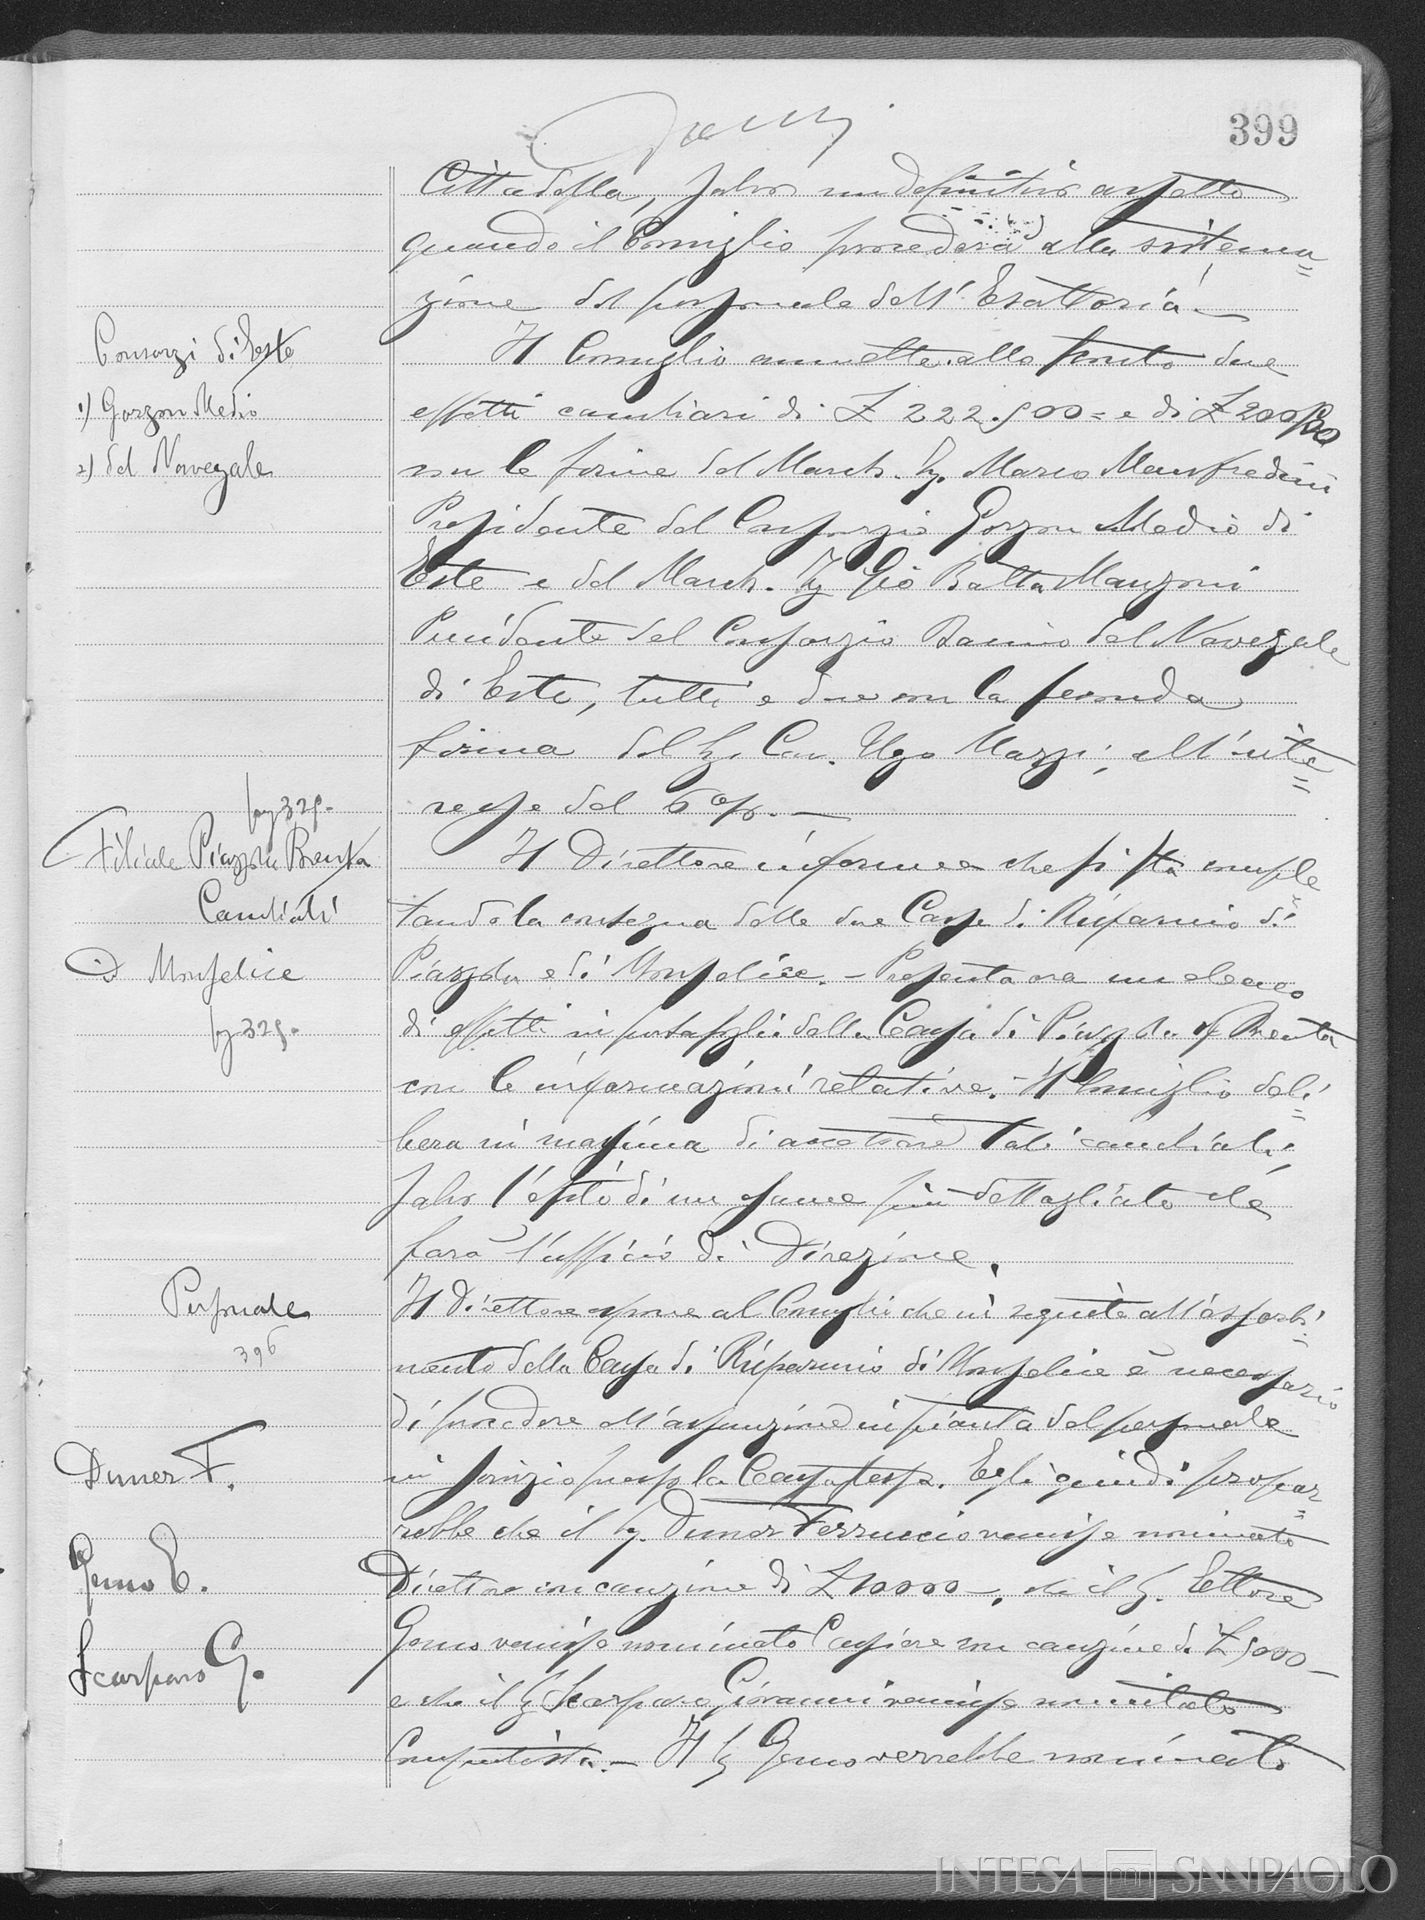 399
Cittadella, salvo un definitivo assetto
quando il Consiglio procederà alla sistema=
zione del personale dell'Esattoria.—
Consorzi di Este
1) Gorzon Medio
2) del Navegale
Il Consiglio ammette allo sconto due
effetti cambiari di £ 222.500= e di £ 200
con le firme del March. Sg. Marco Manfredini
Presidente del Consorzio Gorzon Medio di
Este e del March. Sg Gio Batta Manzoni
Presidente del Consorzio Bacino del Navegale
di Este, tutti e due con la seconda
firma del Sg. Cav. Ugo Mazzi; all'inte=
resse del 6%.—
pag 325.
Filiale Piazzola Brenta
Cambiali
D Monselice
pg 325.
Il Direttore informa che si sta comple=
tando la consegna delle due Casse di Risparmio di
Piazzola e di Monselice.— Presenta ora un elenco
di effetti in portafoglio della Cassa di Piazzola s/ Brenta
con le informazioni relative.— Il Consiglio deli=
bera in massima di accettare tali cambiali
salvo l'esito di un esame più dettagliato che
farà l'ufficio di Direzione.
Personale
396
Il Direttore espone al Consiglio che in seguito all'assorbi=
mento della Cassa di Risparmio di Monselice è necessario
di procedere all'assunzione in pianta del personale
in servizio presso la Cassa stessa. Egli quindi propor=
rebbe che il Sg. Dumer Ferruccio venisse nominato
Direttore con cauzione di £ 10000—, che il Sg. Ettore
Gomo venisse nominato Cassiere con cauzione di £ 5000—
e che il Sg Scarparo Giovanni venisse nominato
Computista.— Il Sg Gomo verrebbe nominato
Dumer F.
Gomo E.
Scarparo G.
INTESA SANPAOLO